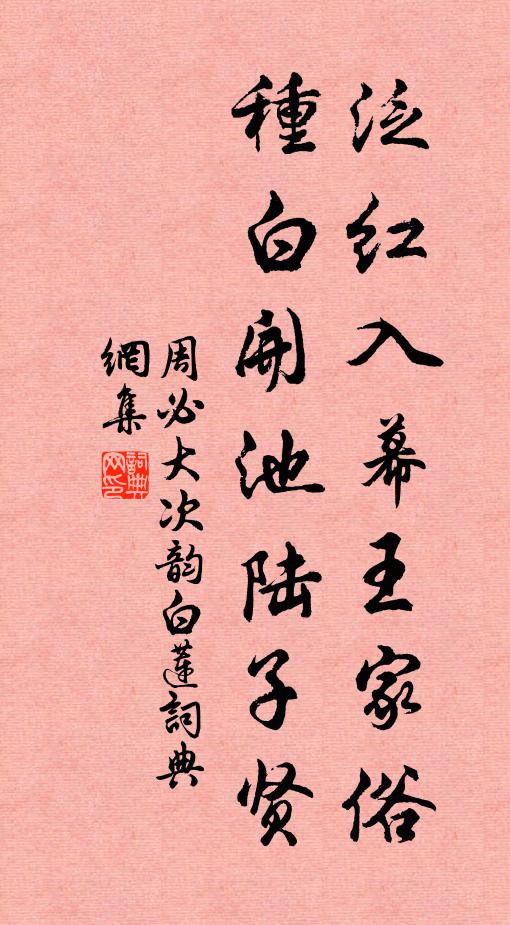 泛红入幕王家俗
種白開池陆子贤
周必大次韵白蓮詞典
網集
詞典网印